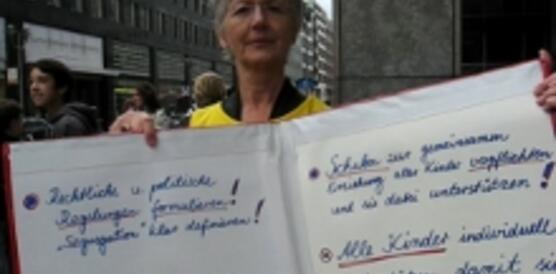 Rechtliche u. politische
Regelungen formulieren!
"Segregation" klar definieren!
Schulen zur gemeinsamen
Erziehung aller Kinder verpflichten
und sie dabei unterstützen!
Alle Kinder individuell
damit sie